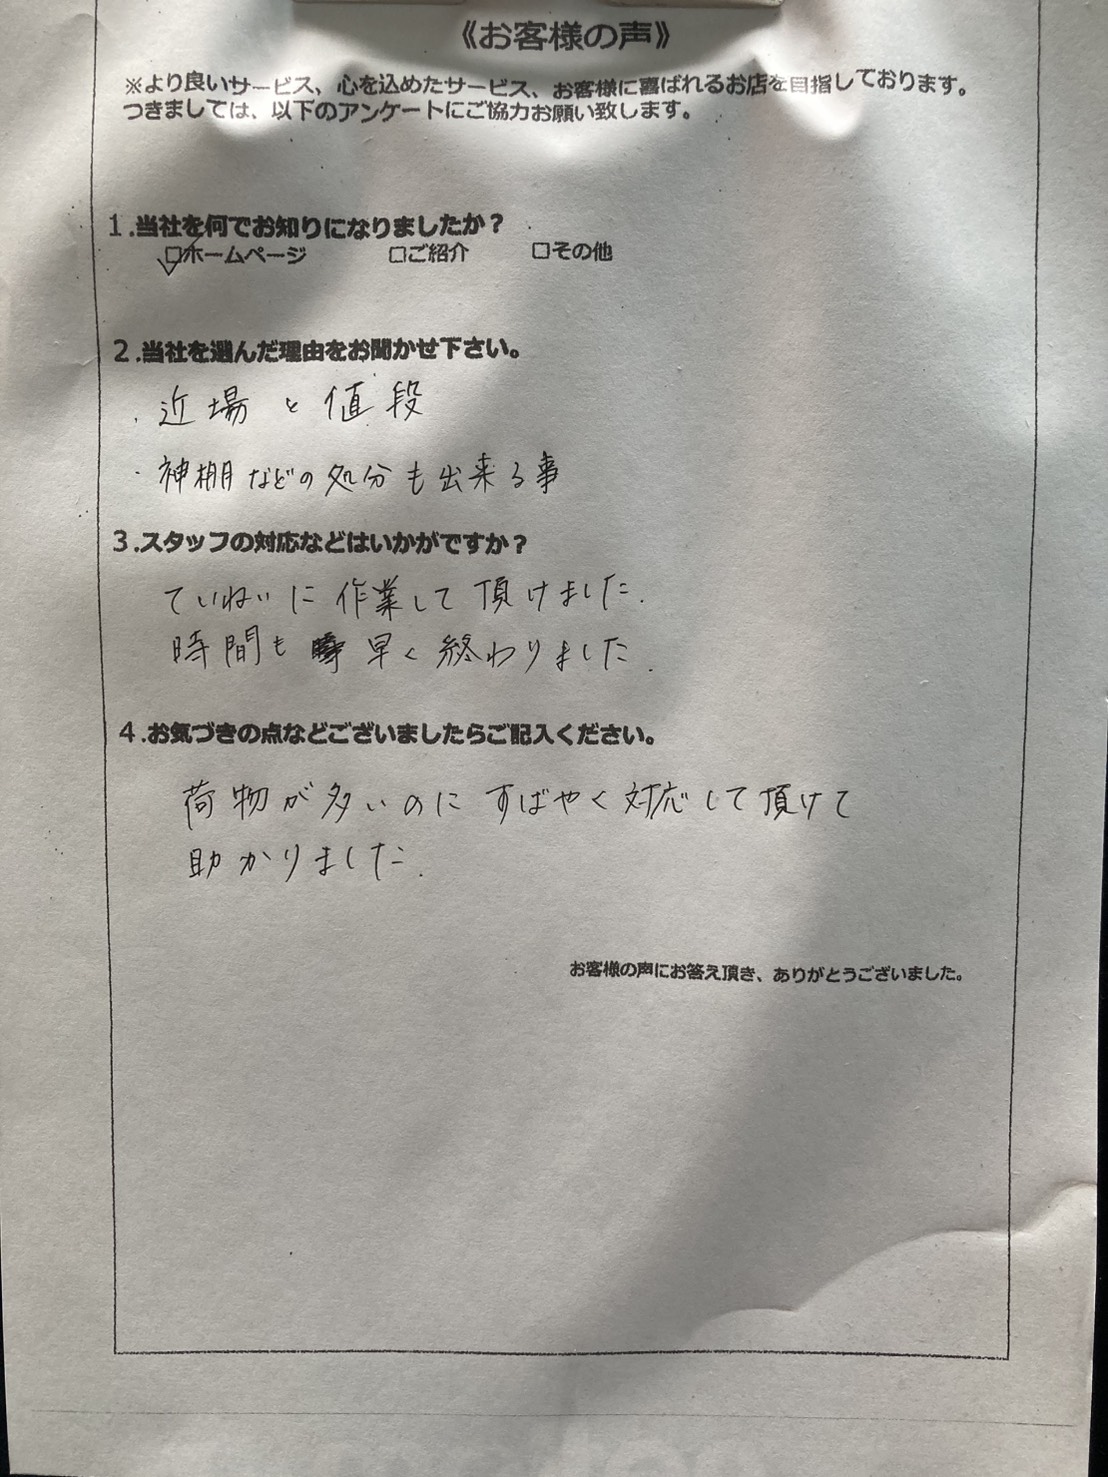 《お客様の声》
※より良いサービス、心を込めたサービス、お客様に喜ばれるお店を目指しております。
つきましては、以下のアンケートにご協力お願い致します。
1.当社を何でお知りになりましたか？
☑ホームページ □ご紹介 □その他
2.当社を選んだ理由をお聞かせ下さい。
・近場と値段
・神棚などの処分も出来る事
3.スタッフの対応などはいかがですか？
ていねいに作業して頂けました.
時間も早く終わりました.
4.お気づきの点などございましたらご記入ください。
荷物が多いのにすばやく対応して頂けて
助かりました.
お客様の声にお答え頂き、ありがとうございました。